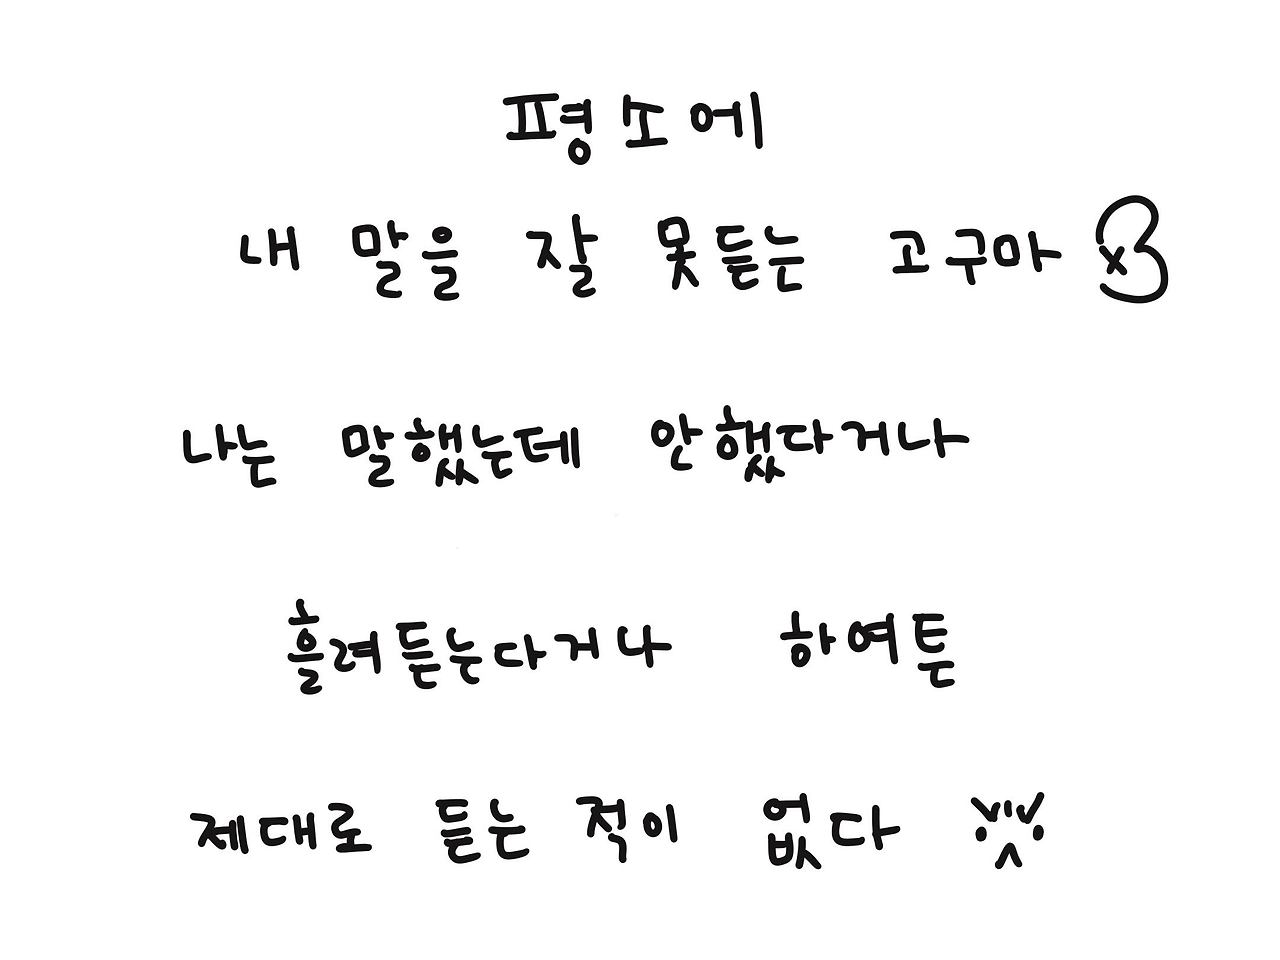 평소에
내 말을 잘 못듣는 고구마
나는 말했는데 안했다거나
흘려듣는다거나 하여튼
제대로 듣는 적이 없다